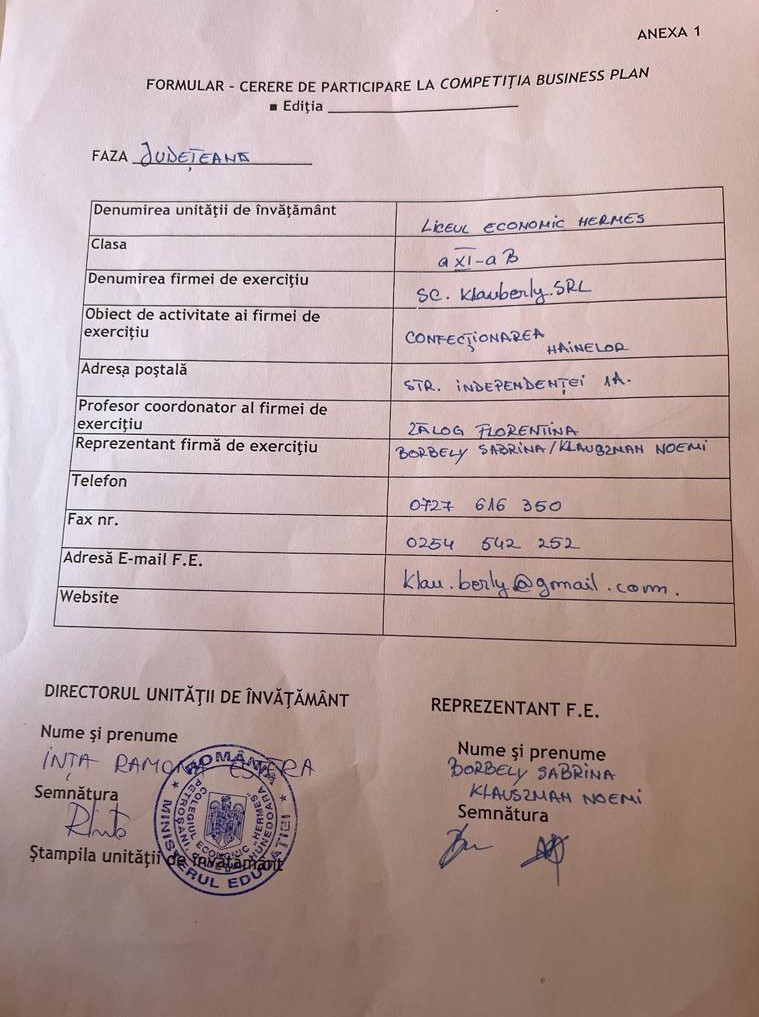 ANEXA 1
FORMULAR - CERERE DE PARTICIPARE LA COMPETIŢIA BUSINESS PLAN
▪ Ediţia
FAZA JUDEŢEANĂ
Denumirea unităţii de învăţământ LICEUL ECONOMIC HERMES
Clasa a XI-a B
Denumirea firmei de exerciţiu SC. Klauberly.SRL
Obiect de activitate ai firmei de
exerciţiu CONFECŢIONAREA
HAINELOR
Adresa poştală STR. INDEPENDENŢEI 1A.
Profesor coordonator al firmei de
exerciţiu ZALOG FLORENTINA
Reprezentant firmă de exerciţiu BORBELY SABRINA/KLAUSZMAN NOEMI
Telefon 0727 616 350
Fax nr. 0254 542 252
Adresă E-mail F.E. klau.berly@gmail.com.
Website
DIRECTORUL UNITĂŢII DE ÎNVĂŢĂMÂNT
Nume şi prenume
INŢA RAMONA ESTERA
Semnătura
Ştampila unităţii de învăţământ
ROMÂNIA
MINISTERUL EDUCAŢIEI
COLEGIUL ECONOMIC "HERMES"
PETROŞANI, HUNEDOARA
REPREZENTANT F.E.
Nume şi prenume
BORBELY SABRINA
KLAUSZMAN NOEMI
Semnătura